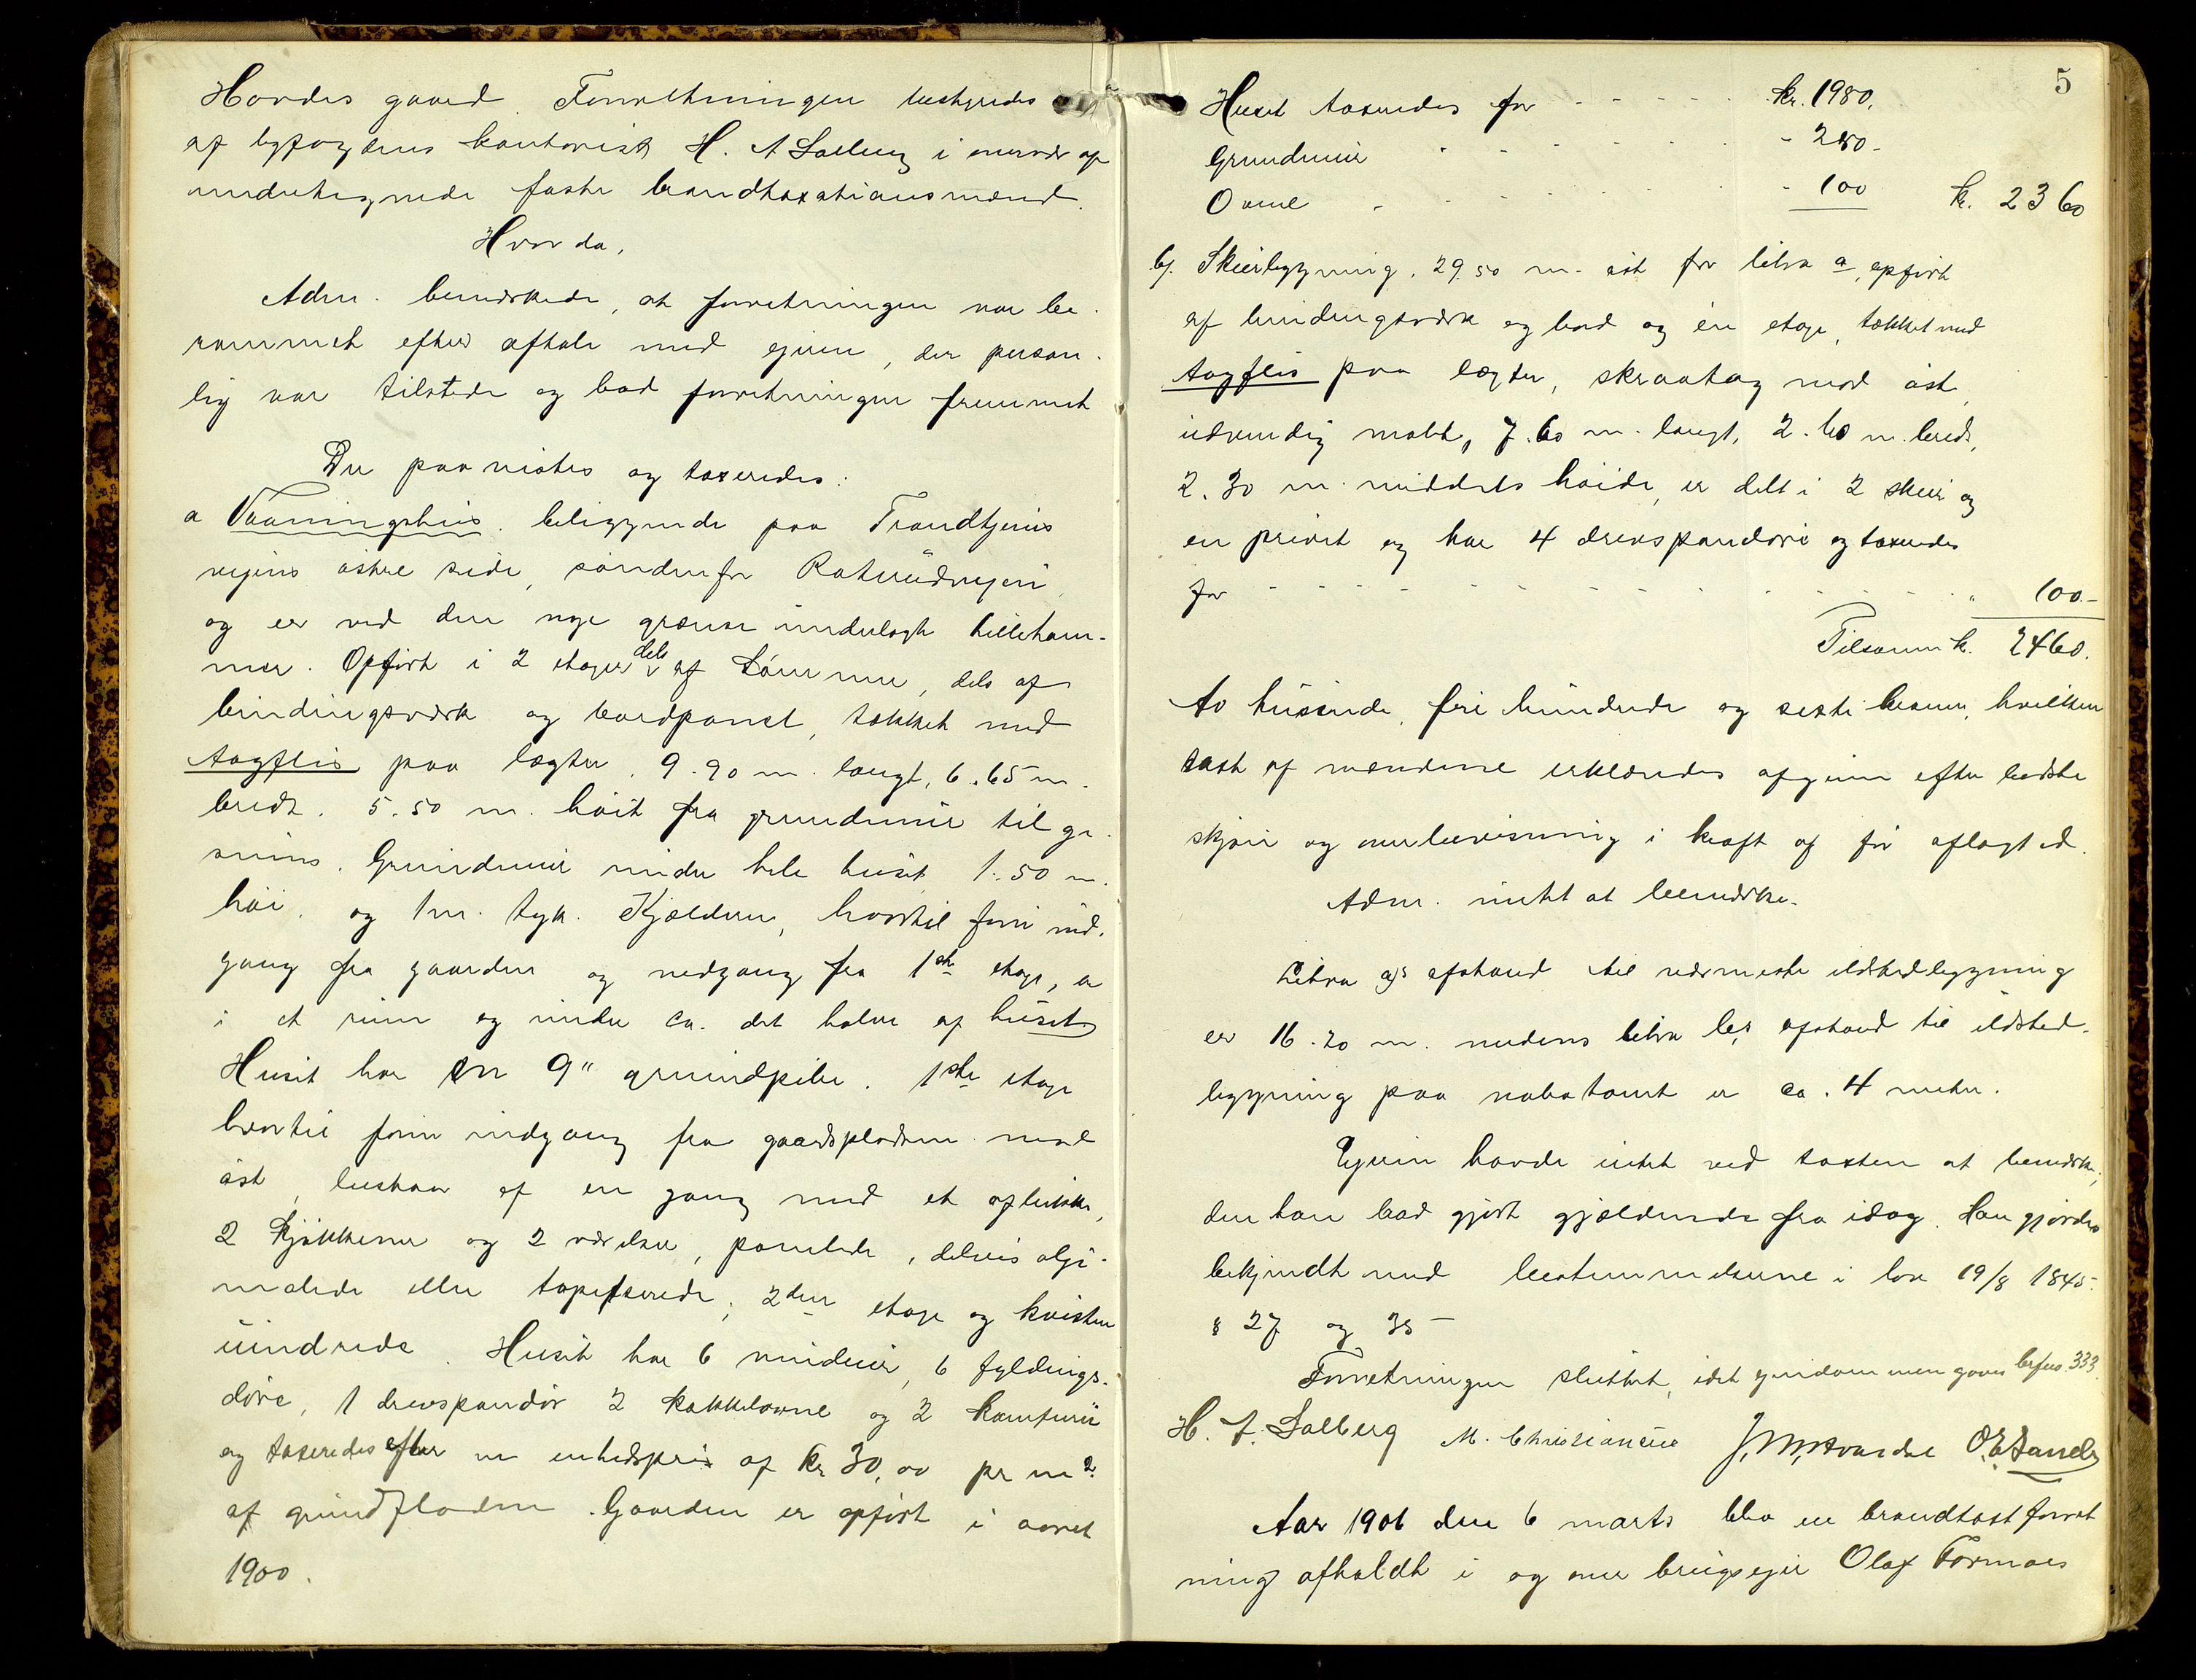 Hovdes gaard. Forretningen bestyredes
af byfogdens kontorist H. A Solberg i overvær af
undertegnede faste brandtaxationsmænd.
Hvor da,
Adm. bemærkede, at forretningen var be-
rammet efter aftale med eieren, der person-
lig var tilstede og bad forretningen fremmet
Der paavistes og taxeredes:
a Vaaningshus beliggende paa Trondhjems
veiens østre side, søndenfor
og er ved den nye grænse underlagt Lilleham-
mer. Opført i 2 etager dels af tømmer, dels af
bindingsværk og bordpanel, tækket med
tagflis paa lægter. 9.90 m. langt, 6.65 m.
bredt. 5.50 m. høit fra grundmur til ge-
sims. Grundmur under hele huset 1.50 m.
høi. og 1 m. tyk. Kjælderen, hvortil fører ned-
gang fra gaarden og nedgang fra 1ste etage, er
i et rum og under ca. det halve af huset
Huset har en 9" grundpibe. 1ste etage
hvortil fører indgang fra gaardspladsen mod
øst, bestaar af en gang med et aflukke,
2 kjøkkener og 2 værelser, panelede, delvis olje-
malede eller tapetserede; 2den etage og kvisten
uindrede. Huset har 6 vinduer, 6 fyldings-
døre, 1 drevspandør 2 kakkelovne og 2 komfurer
og taxeredes efter en enhedspris af Kr 30,00 pr m2
af grundfladen. Gaarden er opført i aaret
1900.
5
Huset taxeredes for - - - - - kr. 1980.
Grundmur - - - - - - 280-
Ovne - - - - - - 100 kr. 2360
b. Skurbygning. 29.50 m. øst for litra a, opført
af bindingsværk og bord og én etage, tækket med
tagflis paa lægter, skraatag mod øst,
udvendig malt, 7.60 m. langt, 2.60 m. bredt,
2.30 m. middels høide, er delt i 2 skur og
en privet og har 4 drevspandøre og taxeredes
for - - - - - - - - - - " 100.-
Tilsammen kr. 2460.
to tusinde, fire hundrede og sexti kroner, hvilken
taxt af mændene erklæredes afgiven efter bedste
skjøn og overbevisning i kraft af før aflagt ed.
Adm. intet at bemærke.
Litra a's afstand til nærmeste ildstedbygning
er 16.20 m. medens litra b's afstand til ildsted-
bygning paa nabotomt er ca. 4 meter.
Eieren havde intet ved taxten at bemærke,
den han bad gjort gjældende fra idag. Han gjordes
bekjendt med bestemmelserne i lov 19/8 1845.
§ 27 og 35 -
Forretningen sluttet, idet eiendommen gaves brfno. 333.
H. A. Solberg M. Christiansen J. M. Hvardal O. E. Sande
Aar 1906 den 6 marts blev en brandtaxtforret
ning afholdt i og over brugseier Olaf Formoes